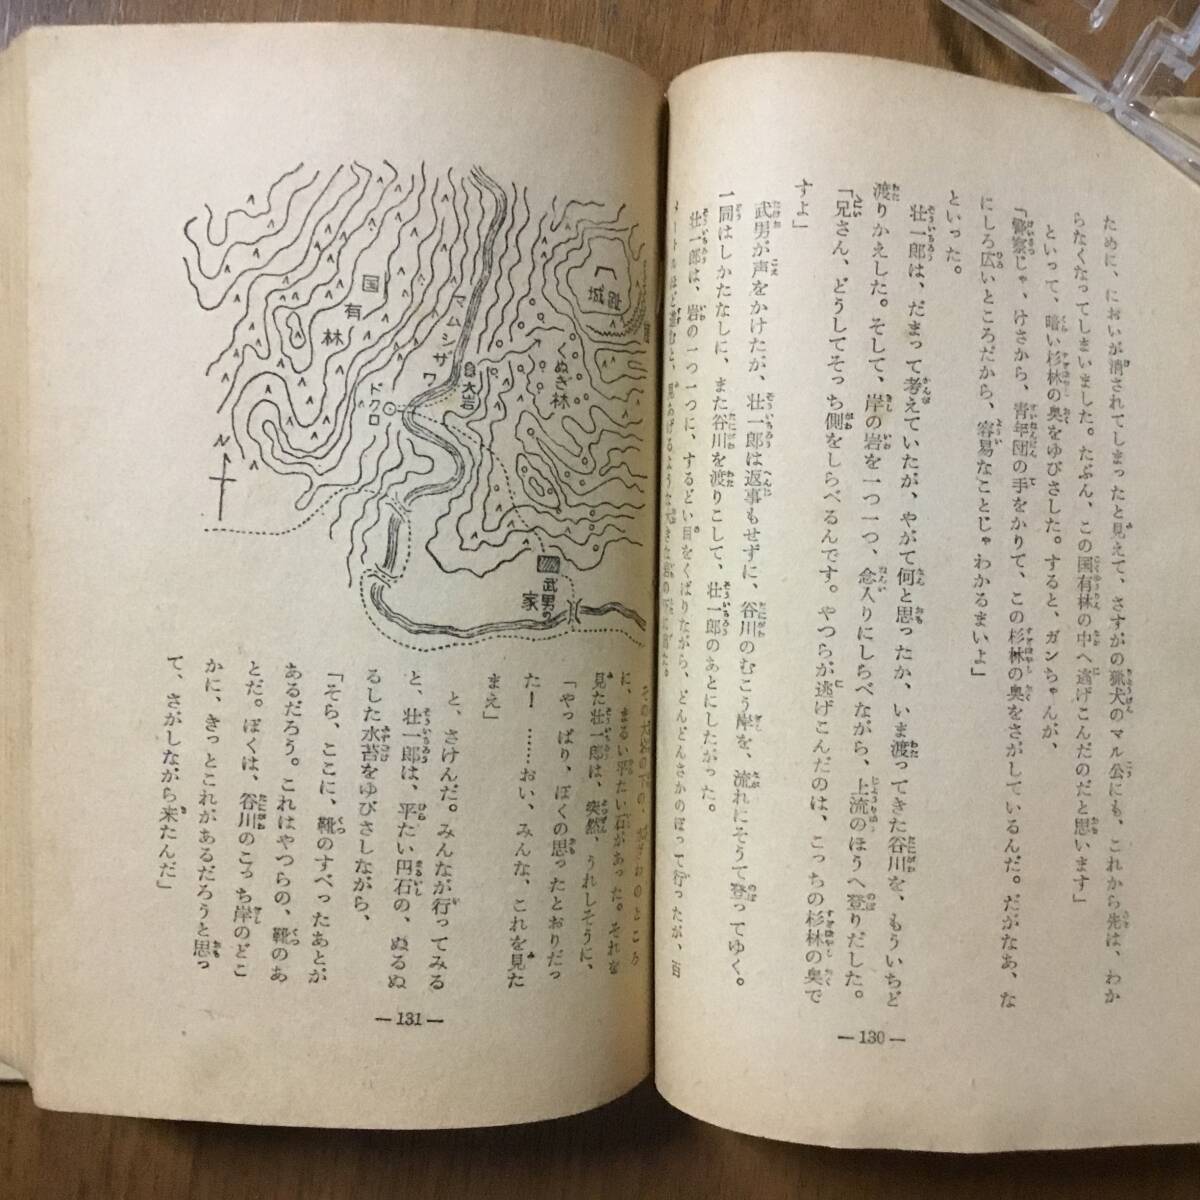 ために、においが消されてしまったと見えて、さすがの猟犬のマル公にも、これから先は、わか
らなくなってしまいました。たぶん、この国有林の中へ逃げこんだのだと思います」
といって、暗い杉林の奥をゆびさした。すると、ガンちゃんが、
「警察じゃ、けさから、青年団の手をかりて、この杉林の奥をさがしているんだ。だがなあ、な
にしろ広いところだから、容易なことじゃわかるまいよ」
といった。
壮一郎は、だまって考えていたが、やがて何と思ったか、いま渡ってきた谷川を、もういちど
渡りかえした。そして、岸の岩を一つ一つ、念入りにしらべながら、上流のほうへ登りだした。
「兄さん、どうしてそっち側をしらべるんです。やつらが逃げこんだのは、こっちの杉林の奥で
すよ」
武男が声をかけたが、壮一郎は返事もせずに、谷川のむこう岸を、流れにそうて登ってゆく。
一同はしかたなしに、また谷川を渡りこして、壮一郎のあとにしたがった。
壮一郎は、岩の一つ一つに、するどい目をくばりながら、どんどんさかのぼって行ったが、百
メートルほど進むと、見あげるような大きな岩の下に出た。
— 130 —
国有林
マムシザワ
ドクロ
大岩
くぬぎ林
城趾
N
武男の家
その大岩の下の、水ぎわのところ
に、まるい平たい石があった。それを
見た壮一郎は、突然、うれしそうに、
「やっぱり、ぼくの思ったとおりだっ
た！……おい、みんな、これを見た
まえ」
と、さけんだ。みんなが行ってみる
と、壮一郎は、平たい円石の、ぬるぬ
るした水苔をゆびさしながら、
「そら、ここに、靴のすべったあとが
あるだろう。これはやつらの、靴のあ
とだ。ぼくは、谷川のこっち岸のどこ
かに、きっとこれがあるだろうと思っ
て、さがしながら来たんだ」
— 131 —